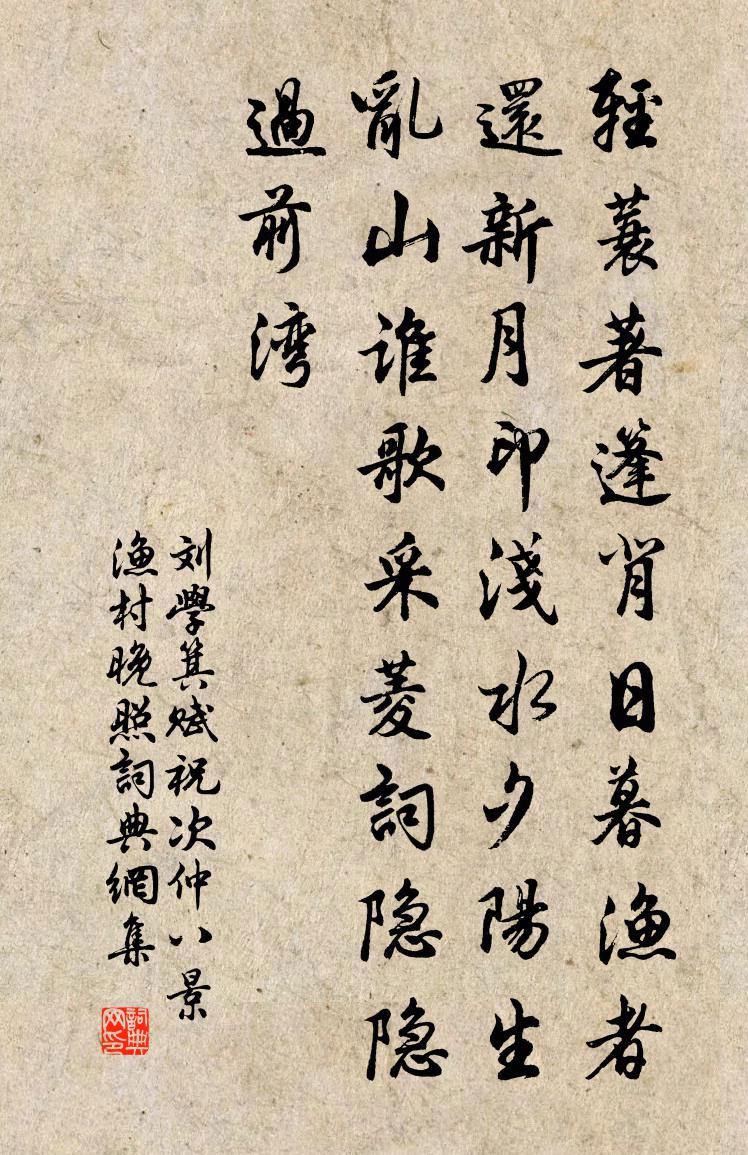 輕蓑著蓬背日暮漁者
還新月印淺水夕陽生
亂山誰歌采菱詞隐隐
過前湾
刘學箕赋祝次仲八景
漁村晚照詞典網集
詞典
网印